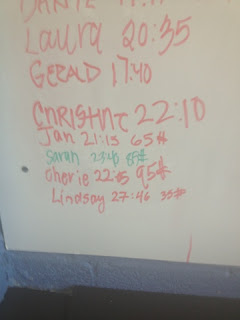 Laura 20:35
GERALD 17:40
CHRISTINE 22:10
Jan 21:13 65#
Sarah 23:40
Cherie 22:45 95#
Lindsay 27:46 35#